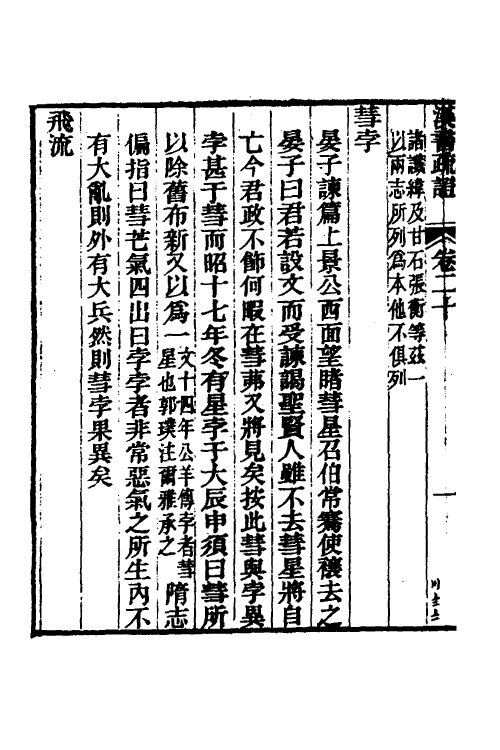 漢書疏證 卷二十
諸讖緯及甘石張衡等茲一
以兩志所列爲本他不俱列
彗孛
晏子諫篇上景公西面望睹彗星召伯常騫使禳去之
晏子曰君若設文而受諫謁聖賢人雖不去彗星將自
亡今君政不飾何暇在彗茀又將見矣按此彗與孛異
孛甚于彗而昭十七年冬有星孛于大辰申須曰彗所
以除舊布新又以爲一文十四年公羊傳孛者彗星也郭璞注爾雅承之隋志
偏指曰彗芒氣四出曰孛孛者非常惡氣之所生內不
有大亂則外有大兵然則彗孛果異矣
飛流